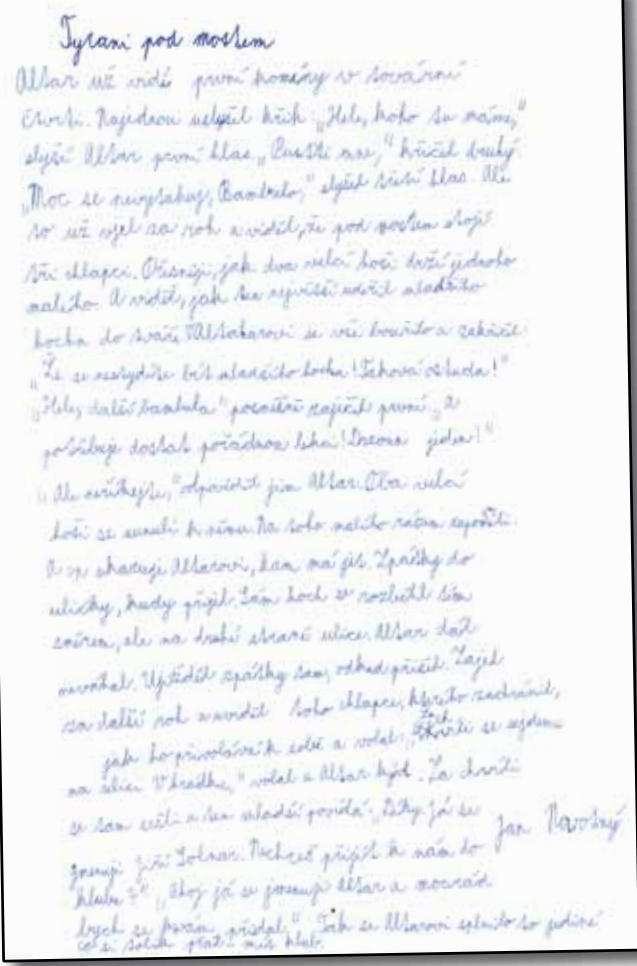 Tyrani pod mostem
Altar už vidí první komíny v tovární
čtvrti. Najednou uslyšel křik: „Hele, koho tu máme,“
slyší Altar první hlas. „Pustte mne,“ křičel druhý.
„Moc se nevytahuj, Bambulo,“ slyšel třetí hlas. Ale
to už vjel za roh a viděl, že pod mostem stojí
tři chlapci. Přesněji, jak dva velcí hoši drží jednoho
malého. A viděl, jak ten největší udeřil mladšího
hocha do tváře. se vše bouřilo a zakřičel:
„Že se nestydíte bít mladšího hocha! Taková ostuda!“
„Hele, další bambula“ posměšně zaječel první „a
potřebuje dostat pořádnou lekci! jeden!“
„Ale neříkejte,“ odpověděl jim Altar. Oba velcí
hoši se sunuli k němu. Na toho malého rázem zapoměli.
A on ukazuje Altarovi, kam má jet. Zpátky do
uličky, kudy přijel. Sám hoch se rozběhl tím
směrem, ale na druhé straně ulice. Altar dál
neváhal. Ujížděl zpátky tam, odkud přijel. Zajel
za další roh a uviděl toho chlapce, kterého zachránil,
jak ho přivolává k sobě a volal: „Za chvíli se sejdeme
na ulici V hrádku,“ volal a Altar jel. Za chvíli
se tam sešli a ten mladší povídá: „Díky. Já se
jmenuji Jiří Solnar. Nechceš přijít k nám do
klubu?“ „Ahoj já se jmenuji Altar a moc rád
bych se k vám přidal.“ Tak se Altarovi splnilo to jediné
co si tolik přál: mít klub.
Jan Novotný